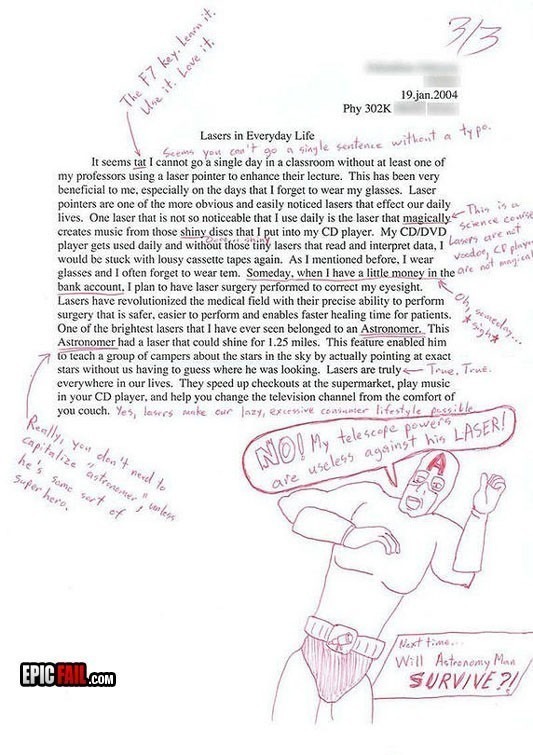 3/3
The F7 key. Learn it.
Use it. Love it.
19.jan.2004
Phy 302K
Lasers in Everyday Life
Seems you can't go a single sentence without a typo.
It seems tat I cannot go a single day in a classroom without at least one of
my professors using a laser pointer to enhance their lecture. This has been very
beneficial to me, especially on the days that I forget to wear my glasses. Laser
pointers are one of the more obvious and easily noticed lasers that effect our daily
lives. One laser that is not so noticeable that I use daily is the laser that magically
creates music from those shiny discs that I put into my CD player. My CD/DVD
player gets used daily and without those tiny lasers that read and interpret data, I
would be stuck with lousy cassette tapes again. As I mentioned before, I wear
glasses and I often forget to wear tem. Someday, when I have a little money in the
bank account, I plan to have laser surgery performed to correct my eyesight.
Lasers have revolutionized the medical field with their precise ability to perform
surgery that is safer, easier to perform and enables faster healing time for patients.
One of the brightest lasers that I have ever seen belonged to an Astronomer. This
Astronomer had a laser that could shine for 1.25 miles. This feature enabled him
to teach a group of campers about the stars in the sky by actually pointing at exact
stars without us having to guess where he was looking. Lasers are truly
everywhere in our lives. They speed up checkouts at the supermarket, play music
in your CD player, and help you change the television channel from the comfort of
you couch.
This is a
science course
Lasers are not
voodoo, CD players
are not magical
shiny
Oh, someday...
*sigh*
True, True.
Yes, lasers make our lazy, excessive consumer lifestyle possible
Really, you don't need to
capitalize "astronomer" unless
he's some sort of
super hero.
NO! My telescope powers
are useless against his LASER!
A
Next time...
Will Astronomy Man
SURVIVE?!
EPICFAIL.COM